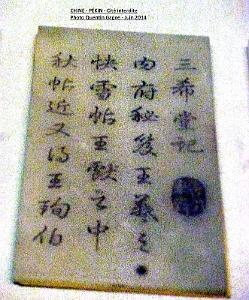 CHINE - PÉKIN - Cité interdite
Photo Quentin - Juin 2014
三希堂記
內府秘笈王羲之
快雪帖王獻之中
秋帖近又得王珣伯